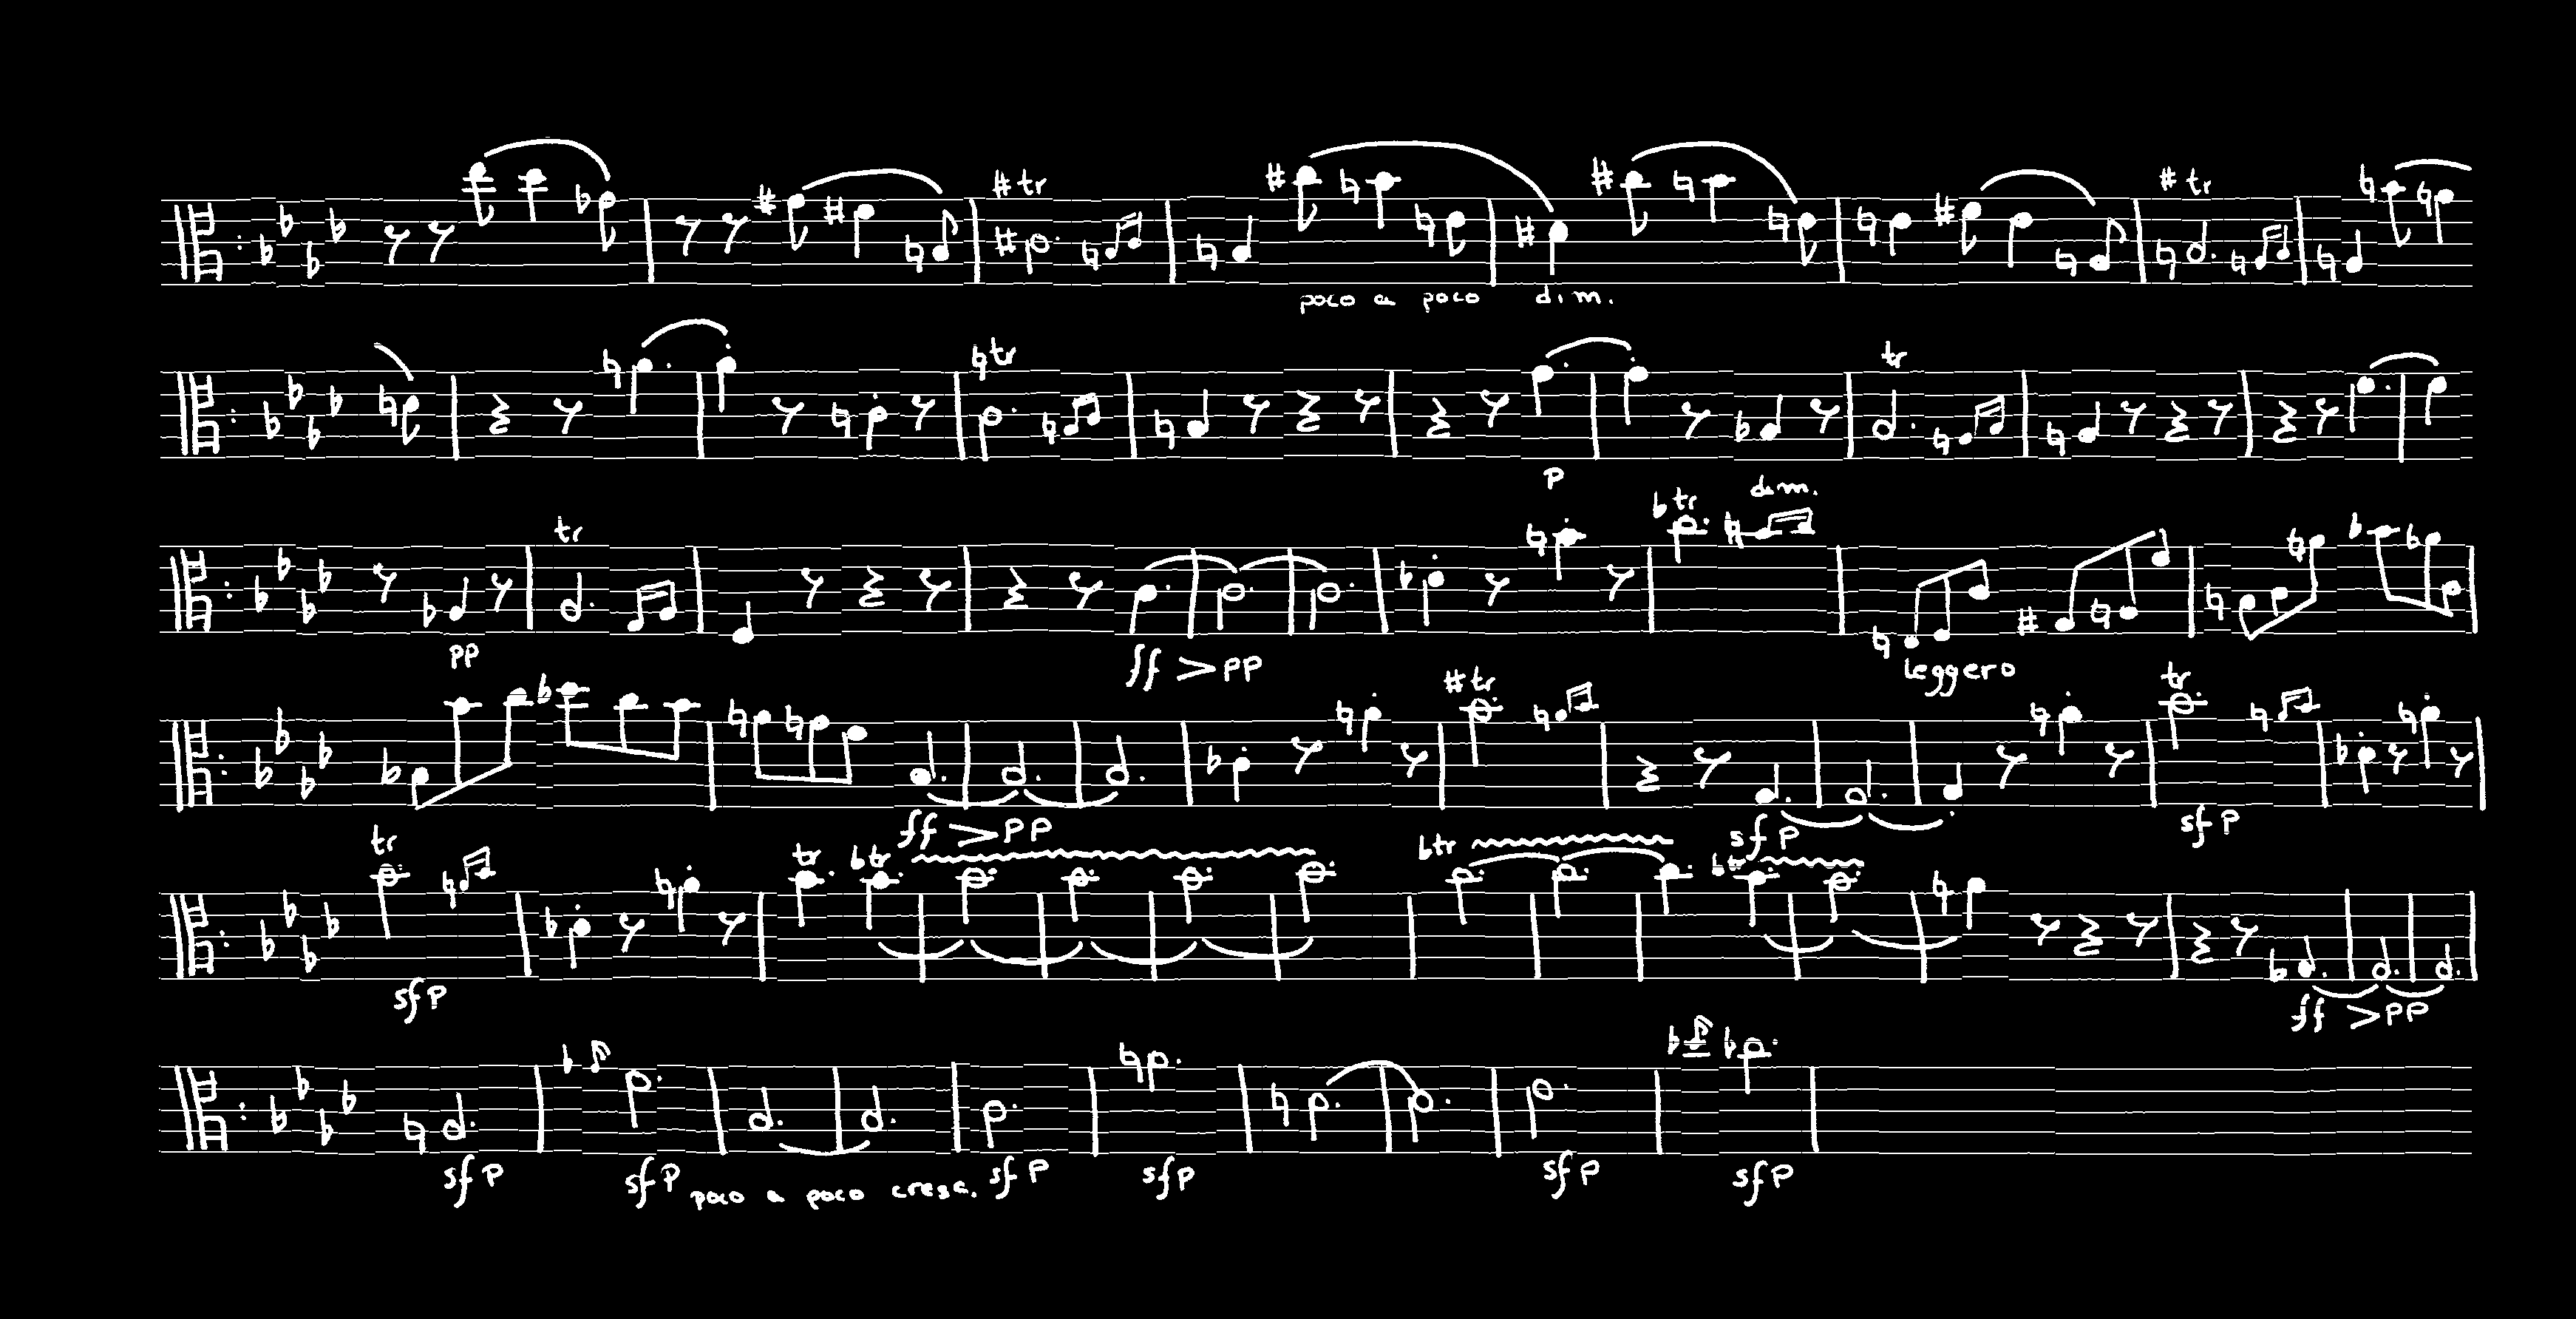 tr tr
poco a poco dim.
tr tr
p
tr dim.
pp ff pp leggero
tr tr
ff pp sfp sfp
tr tr tr tr tr
sfp ff pp
sfp sfp poco a poco cresc. sfp sfp sfp sfp